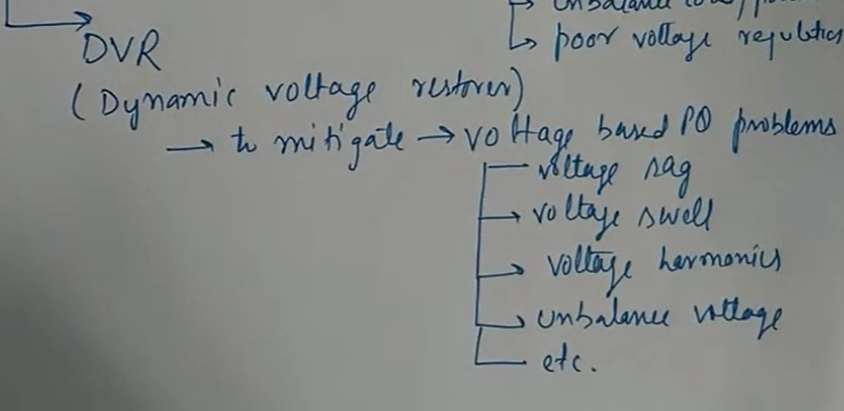 poor voltage regulation
DVR
(Dynamic voltage restorer)
→ to mitigate → voltage based PQ problems
voltage sag
→ voltage swell
→ voltage harmonics
→ unbalance voltage
etc.